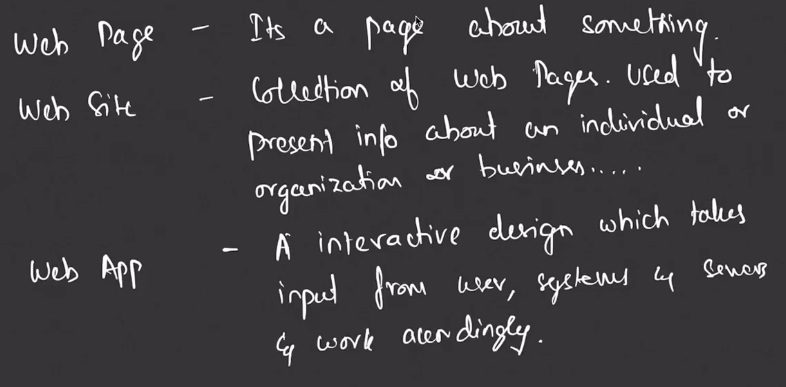 Web Page - Its a page about something.
Web Site - Collection of Web Pages. Used to
present info about an individual or
organization or businses.....
Web App - A interactive design which takes
input from user, systems & servers
& work accordingly.